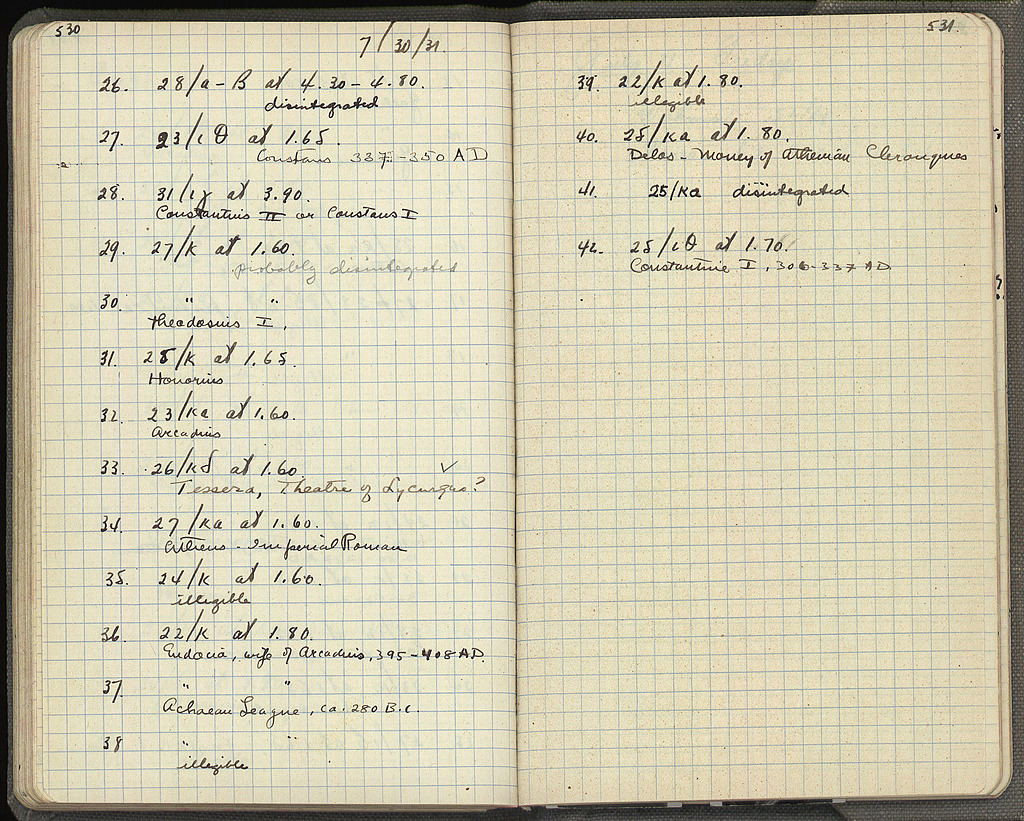 530
7/30/31.
26. 28/a-B at 4.30-4.80.
disintegrated
27. 23/ιθ at 1.65.
Constans 337-350 AD
28. 31/ιγ at 3.90.
Constantius II or Constans I
29. 27/κ at 1.60.
probably disintegrated
30. " "
Theodosius I.
31. 25/κ at 1.65.
Honorius
32. 23/κa at 1.60.
Arcadius
33. 26/κδ at 1.60. ✓
Tessera, Theatre of Lycurgus?
34. 27/κa at 1.60.
Athens - Imperial Roman
35. 24/κ at 1.60.
illegible
36. 22/κ at 1.80.
Eudocia, wife of Arcadius, 395-408 AD.
37. " "
Achaean League, ca. 280 B.C.
38 " "
illegible
531.
39. 22/κ at 1.80.
illegible
40. 25/κa at 1.80.
Delos - Money of Athenian Cleruquies
41. 25/κa disintegrated
42. 25/ιθ at 1.70.
Constantine I, 306-337 AD.